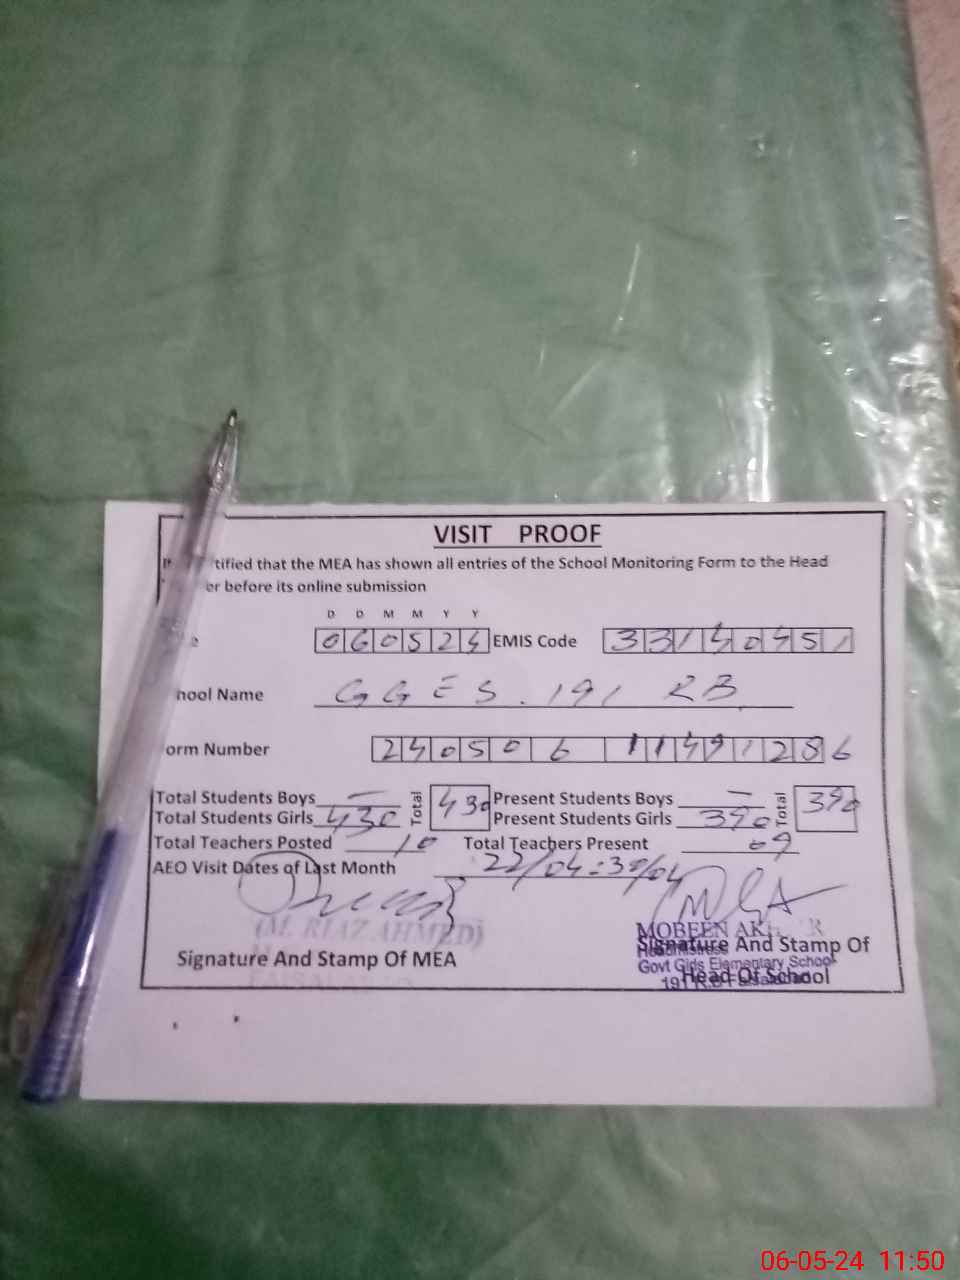 VISIT PROOF
tified that the MEA has shown all entries of the School Monitoring Form to the Head
er before its online submission
D D M M Y Y
e 060524 EMIS Code 33140451
hool Name GGES. 191 RB
orm Number 240506 11491286
Total Students Boys — Total 430 Present Students Boys — Total 390
Total Students Girls 430 Present Students Girls 390
Total Teachers Posted 10 Total Teachers Present 09
AEO Visit Dates of Last Month 22/04 = 30/04
(M. RIAZ AHMED)
Signature And Stamp Of MEA
MOBEEN AK R
Signature And Stamp Of
Headmistress
Govt Girls Elementary School
Head Of School
191 R.B Faisalabad
06-05-24 11:50